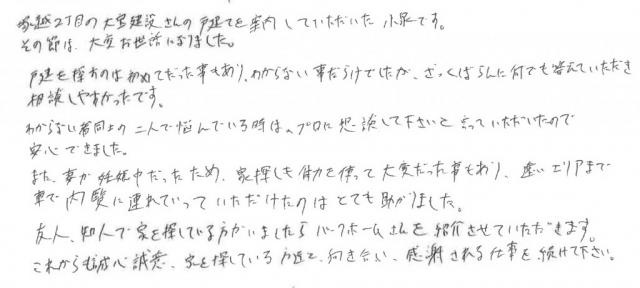 塚越2丁目の大宝建設さんの戸建てを案内していただいた小泉です。
その節は、大変お世話になりました。
戸建を探すのは初めてだった事もあり、わからない事だらけでしたが、ざっくばらんに何でも答えていただき
相談しやすかったです。
わからない者同士の二人で悩んでいる時は、プロに相談して下さいと言っていただいたので
安心できました。
また、妻が妊娠中だったため、家探しも体力を使って大変だった事もあり、遠いエリアまで
車で内覧に連れていっていただけたのはとても助かりました。
友人、知人で家を探している方がいましたらパークホームさんを紹介させていただきます。
これからも誠心誠意、家を探している方達と向き合い、感謝される仕事を続けて下さい。